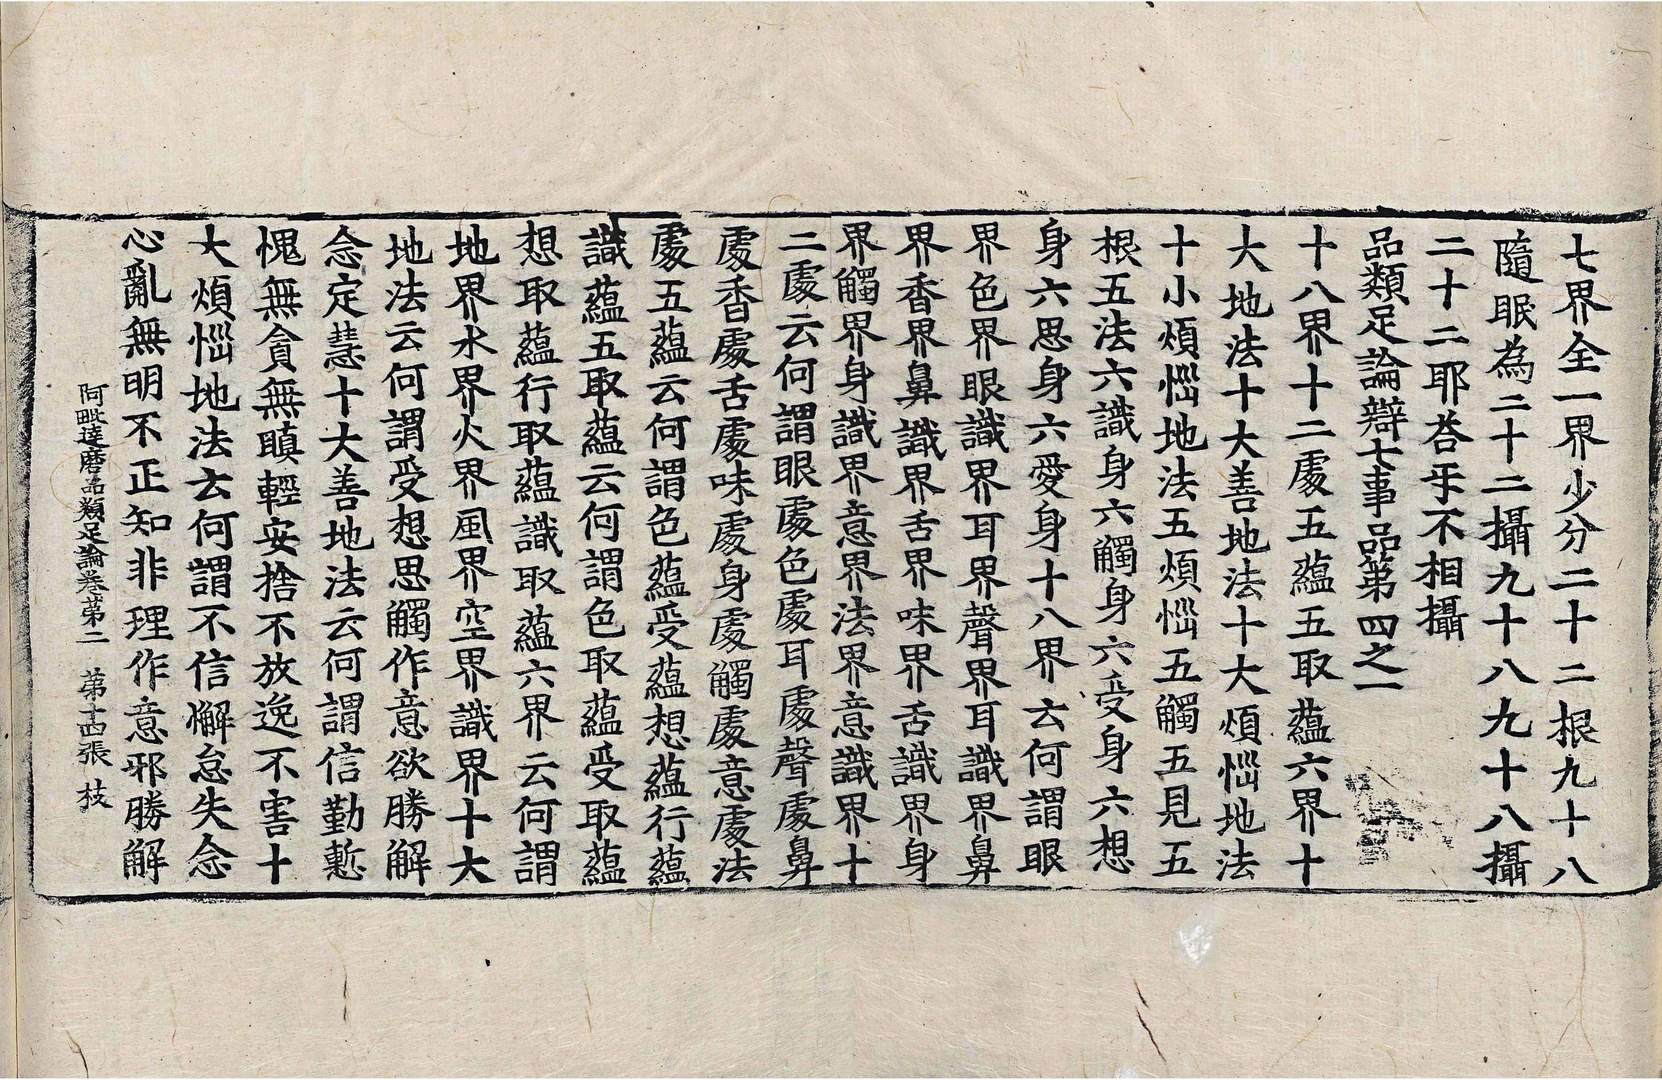 七界全一界少分二十二根九十八
隨眠為二十二攝九十八九十八攝
二十二耶荅㸦不相攝
品類足論辯七事品第四之一
十八界十二䖏五藴五取藴六界十
大地法十大善地法十大煩惱地法
十小煩惱地法五煩惱五觸五見五
根五法六識身六觸身六受身六想
身六思身六愛身十八界云何謂眼
界色界眼識界耳界聲界耳識界鼻
界香界鼻識界舌界味界舌識界身
界觸界身識界意界法界意識界十
二䖏云何謂眼䖏色䖏耳䖏聲䖏鼻
䖏香䖏舌䖏味䖏身䖏觸䖏意䖏法
䖏五藴云何謂色藴受藴想藴行藴
識藴五取藴云何謂色取藴受取藴
想取藴行取藴識取藴六界云何謂
地界水界火界風界空界識界十大
地法云何謂受想思觸作意欲勝解
念定慧十大善地法云何謂信勤慙
愧無貪無瞋輕安捨不放逸不害十
大煩惱地法云何謂不信懈怠失念
心亂無明不正知非理作意邪勝解
阿毗達磨品類足論卷第二　第十四張　枝